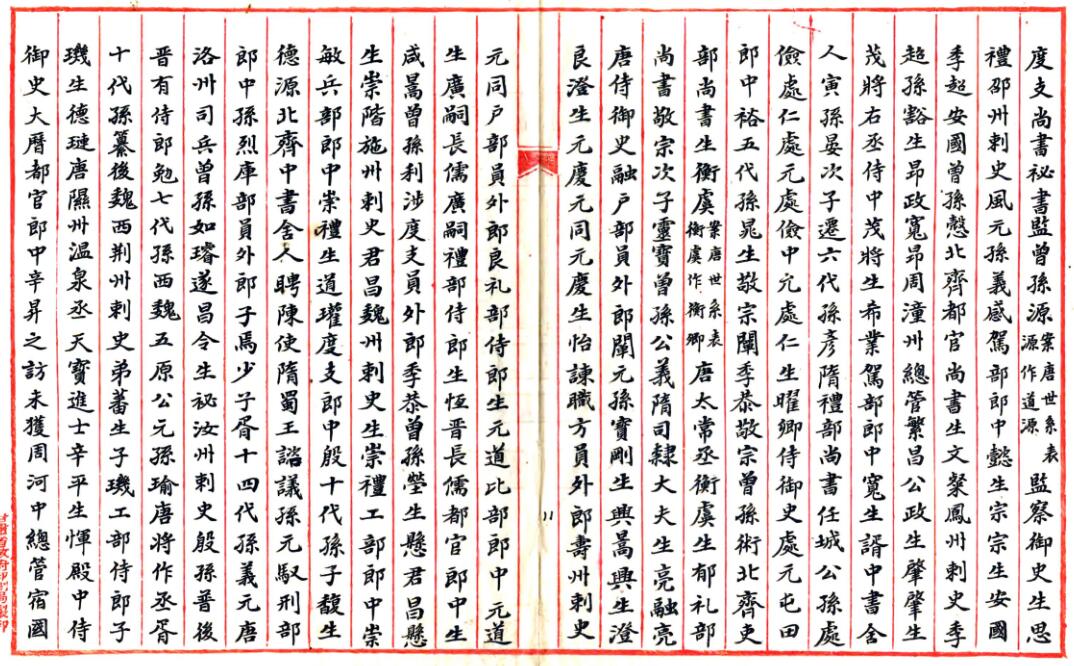 度支尚書祕書監曾孫源案唐世系表源作道源監察御史生思
禮邵州刺史風元孫義感駕部郎中懿生宗宗生安國
季超安國曾孫愨北齊都官尚書生文粲鳳州刺史季
超孫豁生昂政寬昂周潼州總管繁昌公政生肇肇生
茂將右丞侍中茂將生希業駕部郎中寬生諝中書舍
人寅孫晏次子遷六代孫彥隋禮部尚書任城公孫處
儉處仁處元處儉中元處仁生曜卿侍御史處元屯田
郎中裕五代孫晁生敬宗闡季恭敬宗曾孫術北齊吏
部尚書生衡虞案唐世系表衡虞作衡卿唐太常丞衡虞生郁礼部
尚書敬宗次子靈寶曾孫公義隋司隸大夫生亮融亮
唐侍御史融戶部員外郎闡元孫寶剛生興暠興生澄
良澄生元慶元同元慶生怡諫職方員外郎書州刺史
元同戶部員外郎良礼部侍郎生元道比部郎中元道
生廣嗣長儒廣嗣禮部侍郎生恒晋長儒都官郎中生
咸暠曾孫利涉度支員外郎季恭曾孫瑩生懸君昌懸
生崇階施州刺史君昌魏州刺史生崇禮工部郎中崇
敏兵部郎中崇禮生道瓘度支郎中殷十代孫子馥生
德源北齊中書舍人聘陳使隋蜀王諮議孫元馭刑部
郎中孫烈庫部員外郎子焉少子胥十四代孫義元唐
洛州司兵曾孫如璿遂昌令生祕汝州刺史殷孫普後
晋有侍郎勉七代孫西魏五原公元孫瑜唐將作丞胥
十代孫纂後魏西荆州刺史弟蕃生子璣工部侍郎子
璣生德璉唐隰州溫泉丞天寶進士辛平生惲殿中侍
御史大曆都官郎中辛昇之訪未獲周河中總管宿國
11